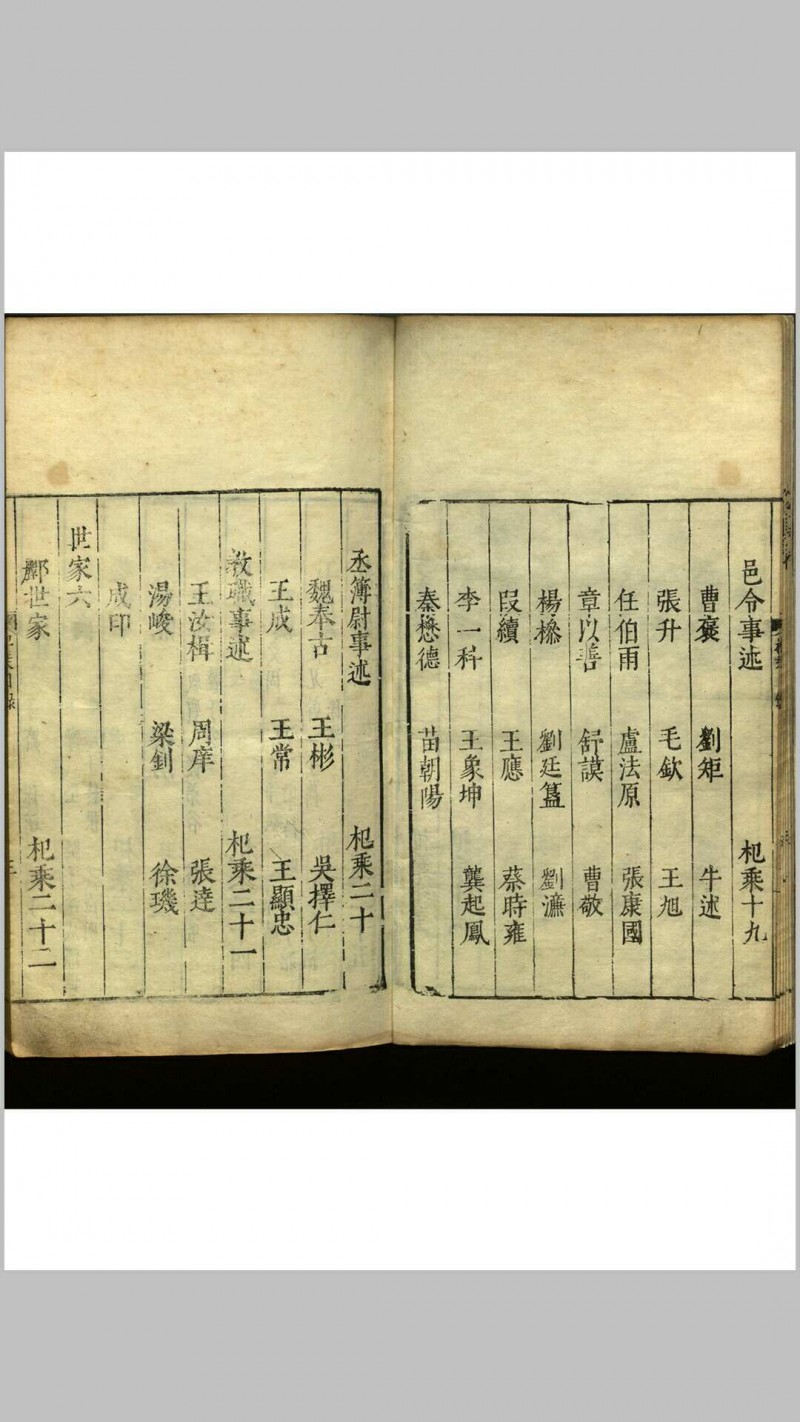 邑令事述 杞乘十九
曹褒 劉矩 牛述
張升 毛欽 王旭
任伯雨 盧法原 張康國
章以善 舒謨 曹敬
楊㮣 劉廷簋 劉濂
段續 王應 蔡時雍
李一科 王象坤 龔起鳳
秦懋德 苗朝陽
丞簿尉事述 杞乘二十
魏奉古 王彬 吳擇仁
王成 王常 王顯忠
教職事述 杞乘二十一
王汝楫 周庠 張達
湯峻 梁釗 徐璣
成印
世家六
酈世家 杞乘二十二